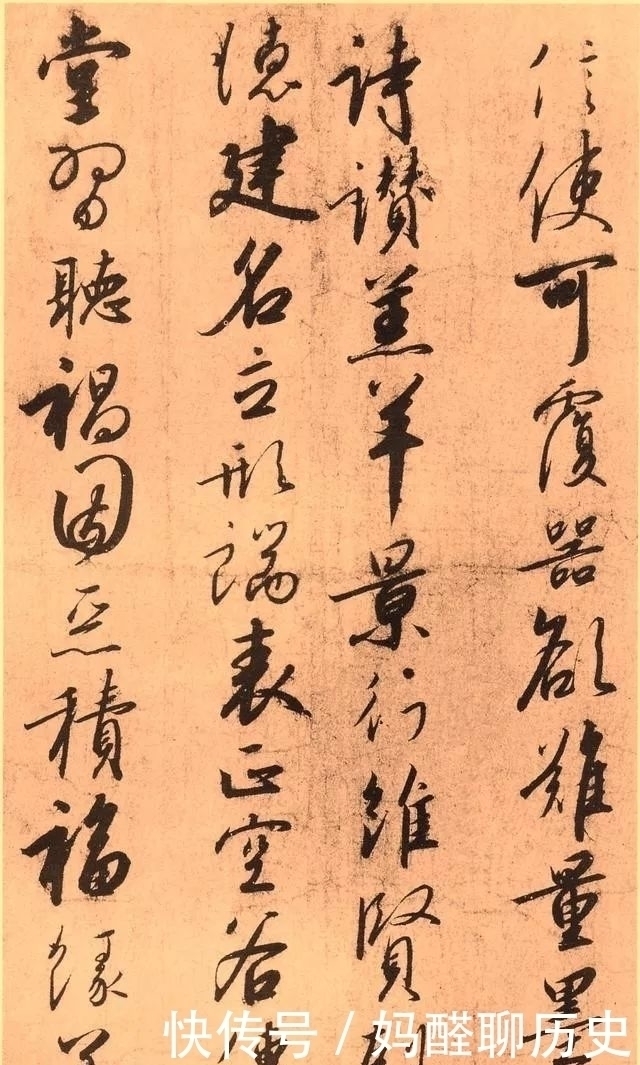 信使可覆器欲難量墨
詩讚羔羊景行維賢
德建名立形端表正空谷傳
堂習聽禍因惡積福緣善
快传号/妈醛聊历史